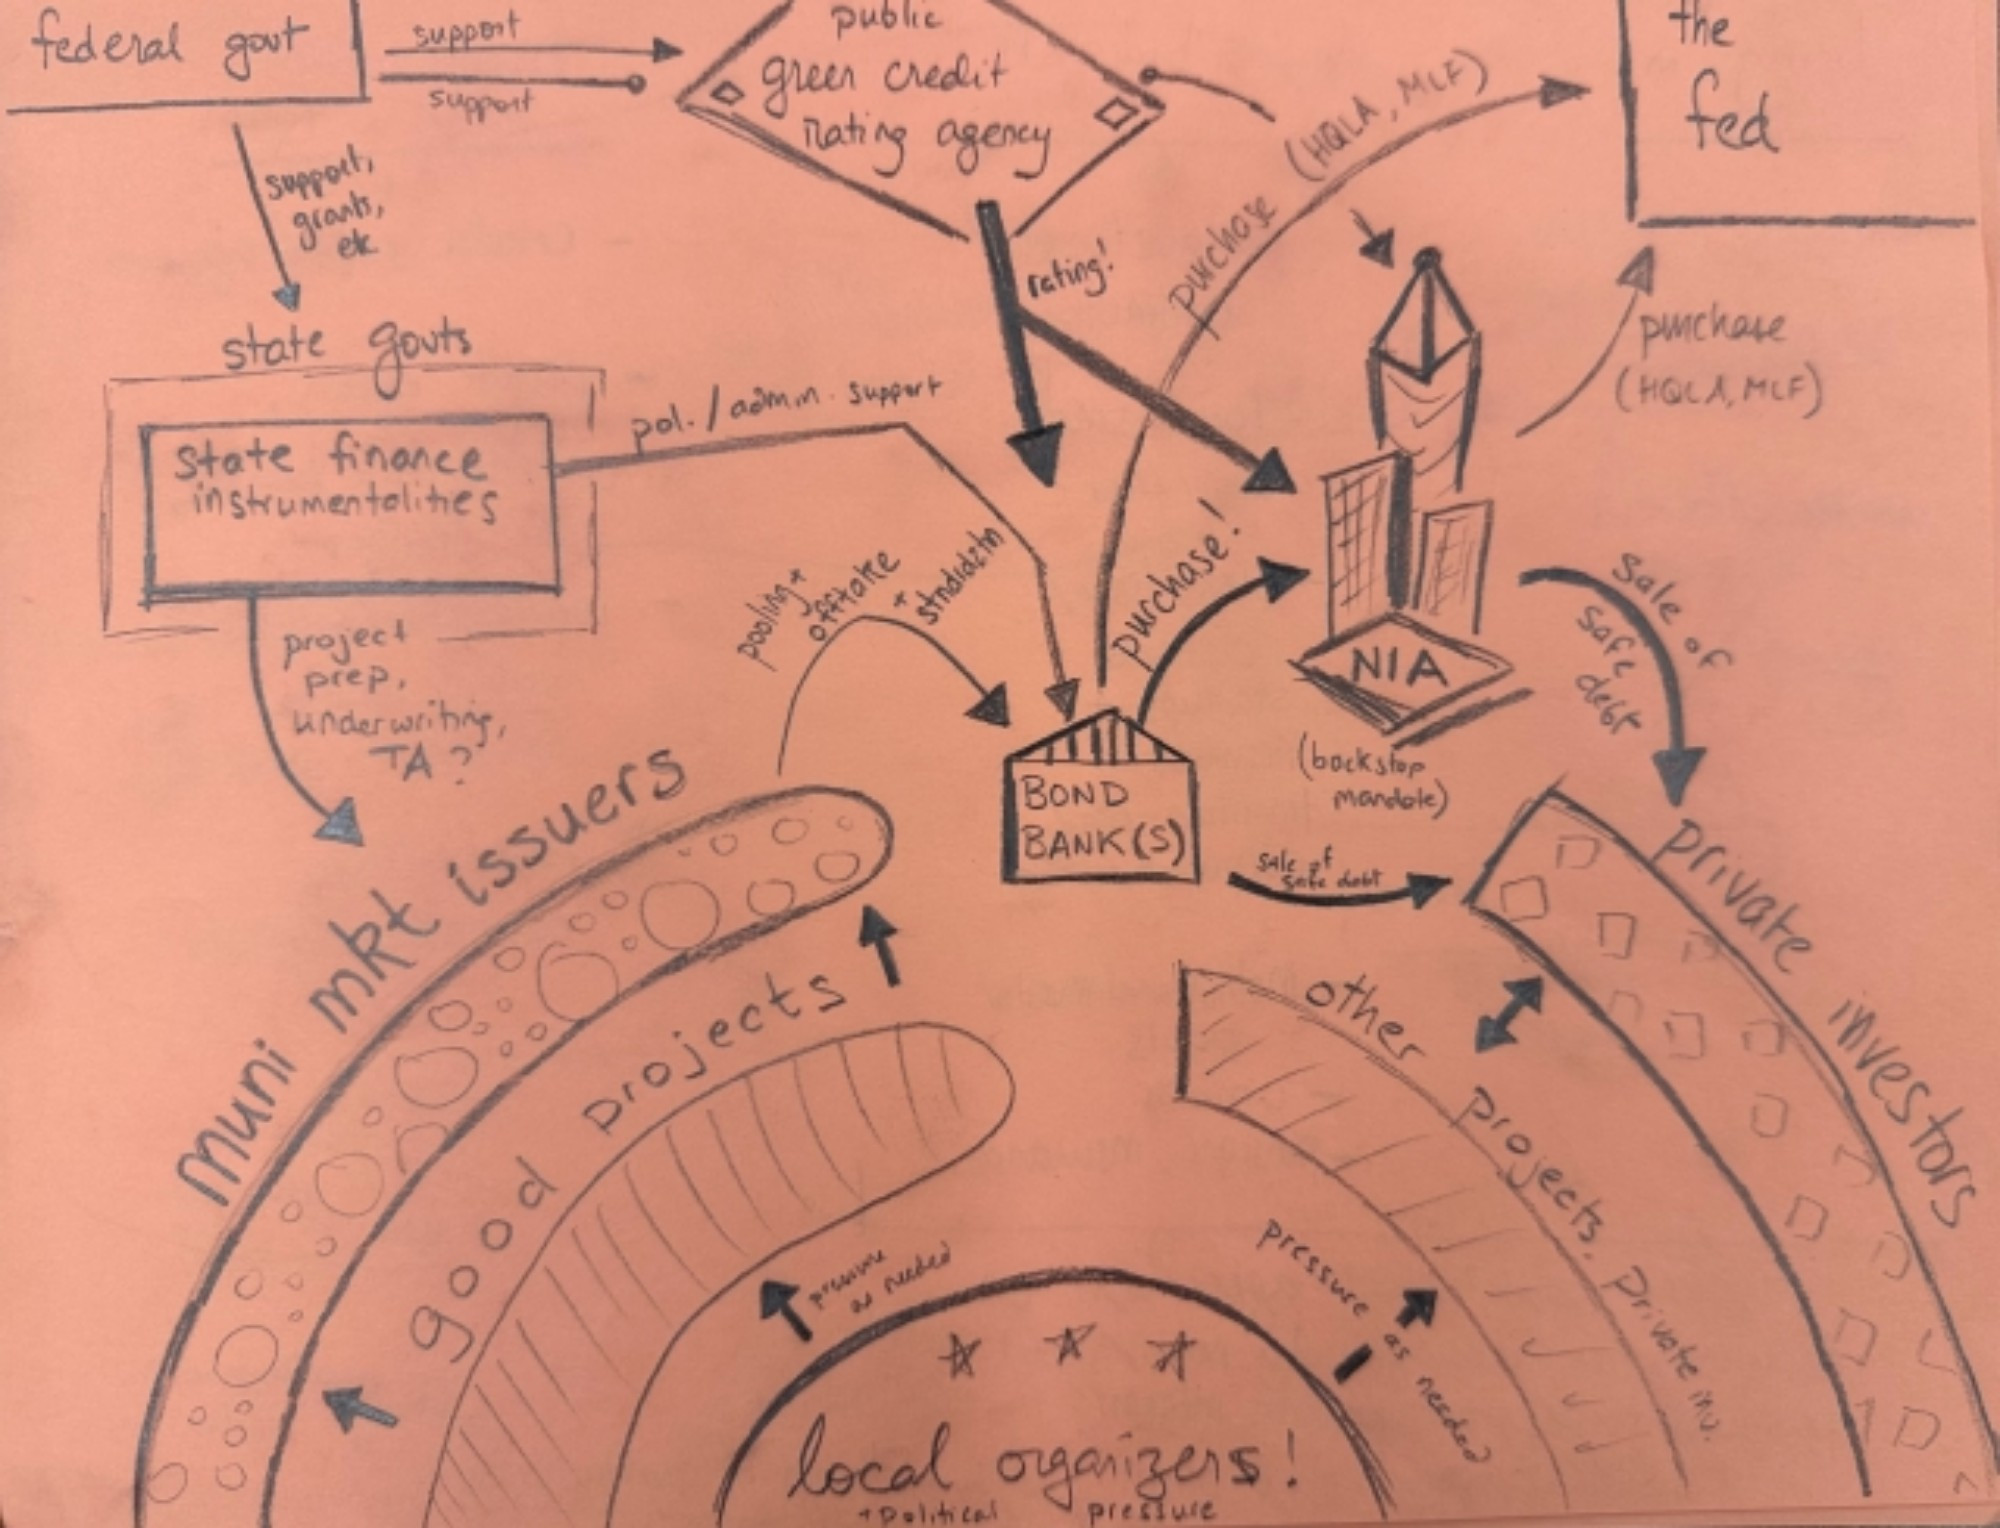 federal govt
support
support
public
green credit
rating agency
the
fed
support,
grants,
etc
rating!
purchase (HQLA, MLF)
purchase
(HQLA, MLF)
state govts
state finance
instrumentalities
pol. / admin. support
project
prep,
underwriting,
TA?
pooling +
offtake
+ stndrdztn
purchase!
NIA
(backstop
mandate)
sale of
safe
debt
BOND
BANK(S)
sale of
safe debt
muni mkt issuers
private investors
good projects
other projects, private inv.
pressure
as needed
pressure as needed
local organizers!
+ political pressure